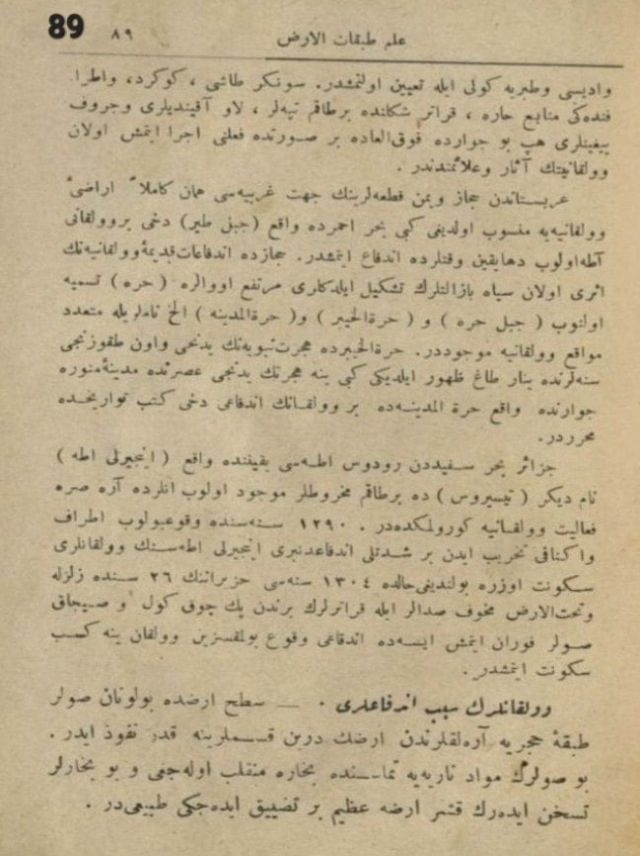 89
٨٩
علم طبقات الارض
واديسی وطبريه كولی ايله تعيين اولنمشدر. سونكر طاشی ، كوكرد، واطرا
فنده‌كی منابع حاره ، قراتر شكلنده برطاقم تپه‌لر ، لاو آقينديلری وجروف
ييغينلری هپ بو جوارده فوق‌العاده بر صورتده فعلنی اجرا ايتمش اولان
وولقانيتك آثار وعلائمندندر .
عربستاندن حجاز ويمن قطعه‌لرينك جهت غربيه‌سی همان كاملاً اراضئ
وولقانيه‌يه منسوب اولديغی كبی بحر احمرده واقع (جبل طير) دخی بروولقانی
آطه‌اولوب دهايقين وقتلرده اندفاع ايتمشدر. حجازده اندفاعات قديمۀ‌وولقانيه‌نك
اثری اولان سياه بازالتلرك تشكيل ايلدكلری مرتفع اووالره (حره) تسميه
اولنوب (جبل حره) و (حرةالخيبر) و( حرةالمدينه ) الخ ناملريله متعدد
مواقع وولقانيه موجوددر. حرةالخيبرده هجرت‌نبويه‌نك يدنجی واون طقوزنجی
سنه‌لرنده ينار طاغ ظهور ايلديكی كبی ينه هجرتك يدنجی عصرنده مدينۀ‌منوره
جوارنده واقع حرة المدينه‌ده بر وولقانك اندفاعی دخی كتب تواريخده
محرردر.
جزائر بحر سفيددن رودوس اطه‌سی يقيننده واقع ( اينجيرلی اطه )
نام ديكر (نيسيروس) ده برطاقم مخروطلر موجود اولوب انلرده آره صره
فعاليت وولقانيه كورولمكده‌در . ١٢٩٠ سنه‌سنده وقوعبولوب اطراف
واكنافی تخريب ايدن بر شدتلی اندفاعدنبری اينجيرلی اطه‌سنك وولقانلری
سكونت اوزره بولنديغی‌حالده ١٣٠٤ سنه‌سی حزيراننك ٢٦ سنده زلزله
وتحت‌الارض مخوف صدالر ايله قراترلرك برندن پك چوق كول و صيجاق
صولر فوران ايتمش ايسه‌ده اندفاعی وقوع بولقسزين وولقان ينه كسب
سكونت ايتمشدر .
وولقانلرك سبب اندفاعلری . — سطح ارضده بولونان صولر
طبقۀ حجريه آره‌لقلرندن ارضك درين قسملرينه قدر نفوذ ايدر .
بو صولرك مواد ناريه‌يه تماسنده بخاره منقلب اوله‌جغی و بو بخارلر
تسخن ايده‌رك قشر ارضه عظيم بر تضييق ايده‌جكی طبيعی‌در .